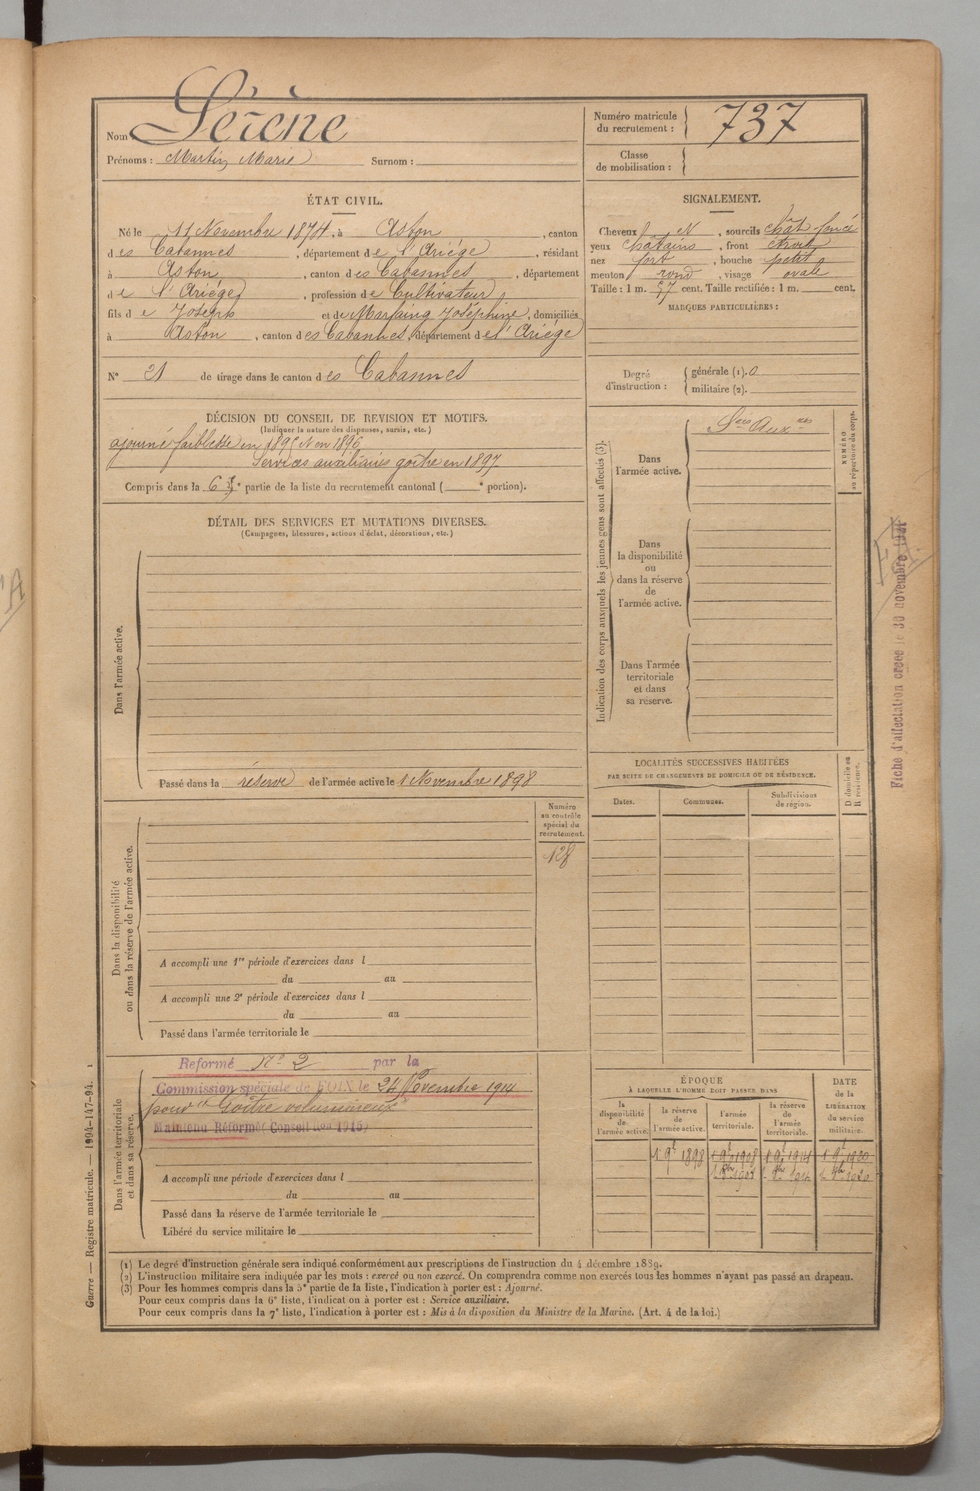 Nom Sérène
Prénoms : Martin Marie Surnom :
Numéro matricule
du recrutement : 737
Classe
de mobilisation :
ÉTAT CIVIL.
Né le 11 Novembre 1874, à Aston, canton
des Cabannes, département de l'Ariège, résidant
à Aston, canton des Cabannes, département
de l'Ariège, profession de Cultivateur,
fils de Joseph et de Marfaing Joséphine, domiciliés
à Aston, canton des Cabannes, département de l'Ariège
N° 21 de tirage dans le canton des Cabannes
SIGNALEMENT.
Cheveux N, sourcils chât foncé
yeux châtains, front étroit
nez fort, bouche petite
menton rond, visage ovale
Taille : 1 m. 57 cent. Taille rectifiée : 1 m. cent.
MARQUES PARTICULIÈRES :
Degré
d'instruction :
générale (1). 0
militaire (2).
DÉCISION DU CONSEIL DE REVISION ET MOTIFS.
(Indiquer la nature des dispenses, sursis, etc.)
ajourné faiblesse en 1895 N en 1896
Services auxiliaires goître en 1897
Compris dans la 6e partie de la liste du recrutement cantonal ( e portion).
DÉTAIL DES SERVICES ET MUTATIONS DIVERSES.
(Campagnes, blessures, actions d'éclat, décorations, etc.)
Dans l'armée active.
Passé dans la réserve de l'armée active le 1 Novembre 1898
Indication des corps auxquels les jeunes gens sont affectés (3).
NUMÉRO
au répertoire du corps.
Sces Auxres
Dans
l'armée active.
Dans
la disponibilité
ou
dans la réserve
de
l'armée active.
Dans l'armée
territoriale
et dans
sa réserve.
Fiche d'affectation créée le 30 novembre
LOCALITÉS SUCCESSIVES HABITÉES
PAR SUITE DE CHANGEMENTS DE DOMICILE OU DE RÉSIDENCE.
Dates. Communes. Subdivisions
de région.
D domicile ou
R résidence.
Numéro
au contrôle
spécial du
recrutement.
128
Dans la disponibilité
ou dans la réserve de l'armée active.
A accompli une 1re période d'exercices dans l
du au
A accompli une 2e période d'exercices dans l
du au
Passé dans l'armée territoriale le
Dans l'armée territoriale
et dans sa réserve.
Reformé N° 2 par la
Commission spéciale de FOIX le 24 Novembre 1914
pour " Goître volumineux "
Maintenu Réformé (Conseil 1915)
A accompli une période d'exercices dans l
du au
Passé dans la réserve de l'armée territoriale le
Libéré du service militaire le
ÉPOQUE
À LAQUELLE L'HOMME DOIT PASSER DANS
DATE
de la
LIBÉRATION
du service
militaire.
la
disponibilité
de
l'armée active.
la réserve
de
l'armée active.
l'armée
territoriale.
la réserve
de
l'armée
territoriale.
1 9e 1898 1 9e 1908 1 9e 1914 1 9e 1920
Guerre — Registre matricule. — 1994-147-94. 1
(1) Le degré d'instruction générale sera indiqué conformément aux prescriptions de l'instruction du 4 décembre 1889.
(2) L'instruction militaire sera indiquée par les mots : exercé ou non exercé. On comprendra comme non exercés tous les hommes n'ayant pas passé au drapeau.
(3) Pour les hommes compris dans la 5e partie de la liste, l'indication à porter est : Ajourné.
Pour ceux compris dans la 6e liste, l'indication à porter est : Service auxiliaire.
Pour ceux compris dans la 7e liste, l'indication à porter est : Mis à la disposition du Ministre de la Marine. (Art. 4 de la loi.)